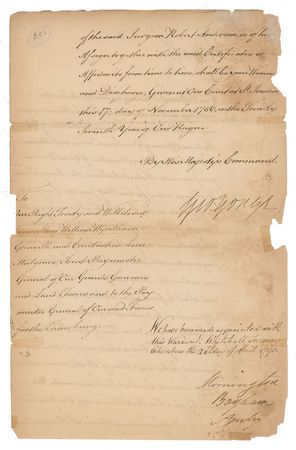 of the said Surgeon Robert Anderson or of his
Assigns together with the said Certificates or
Affidavits from time to time, shall be your Warrant
and Discharge. Given at Our Court at St. James's
this 17th day of November 1786, in the Twenty
Seventh Year of Our Reign.
By His Majesty's Command.
To
Our Right Trusty and Welbeloved
Councillors William Wyndham
Grenville and Constantine Lord
Mulgrave, Joint Paymaster
General of Our Guards Garrisons
and Land Forces and to the Pay
master General of Our said Forces
for the Time being.
We have been made acquainted with
this Warrant. Whitehall Treasury
Chambers the day of April 1790
Mornington